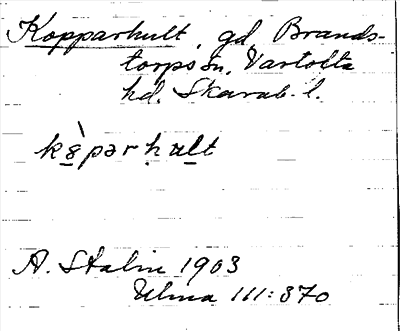 Kopparhult, gd, Brands-
torps sn, Vartofta
hd. Skarab. l.
A. Stalin 1903
Ulma 111:370